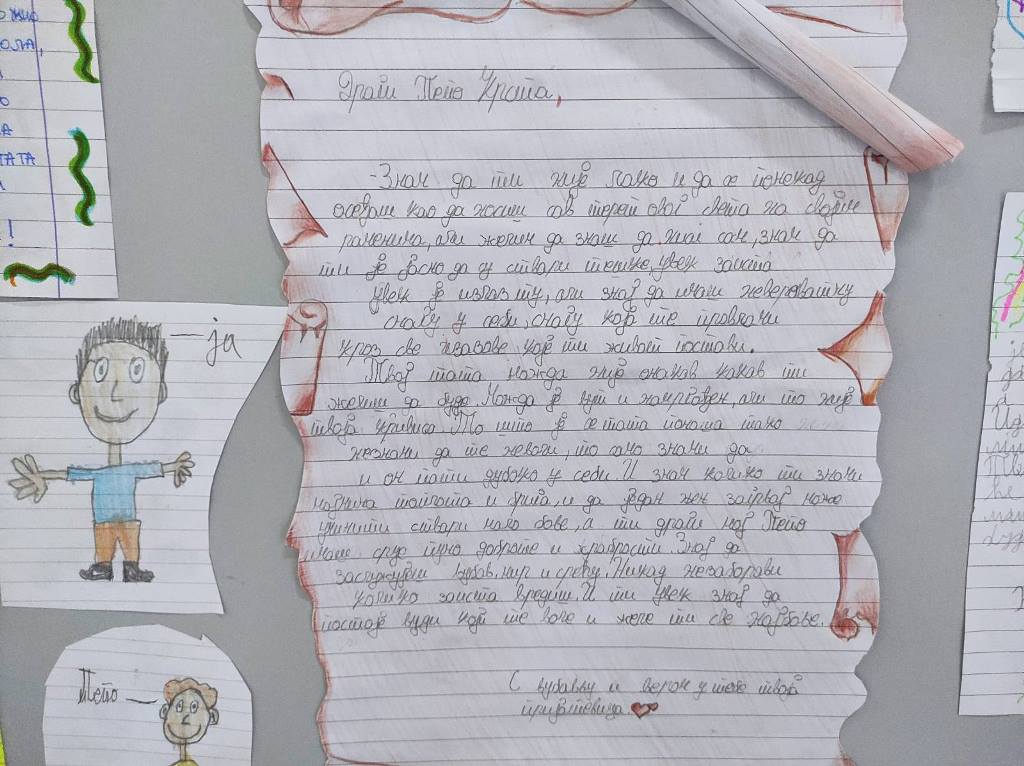 Драги Пепо Крста,
-Знам да ти није лако и да се понекад
осећаш као да носиш сав терет овог света на својим
раменима, али желим да знаш да ниси сам, знам да
ти је јасно да су ствари тешке, увек заиста
увек је излаз ту, али знај да имаш неверовашну
снагу у себи, снагу која те провлачи
кроз све изазове које ти живот постави.
Твој тата можда није онакав какав ти
желиш да буде. Можда је љут и неправедан, али то није
твоја кривица. То што је се тата понаша тако
незначи да те неволи, то само значи да
и он пати дубоко у себи. И знам колико ти значи
мајчина топлота и брига и да један њен загрљај може
учинити ствари мало боље, а ти драги мој Пепо
имаш срце пуно доброте и храбрости. Знај да
заслужујеш љубав, мир и срећу. Никад незаборави
колико заиста вредиш. И ти увек знај да
постоје људи који те воле и желе ти све најбоље.
С љубављу и вером у тебе твоја
пријатељица.
ja
Пепо
ТАТА
!